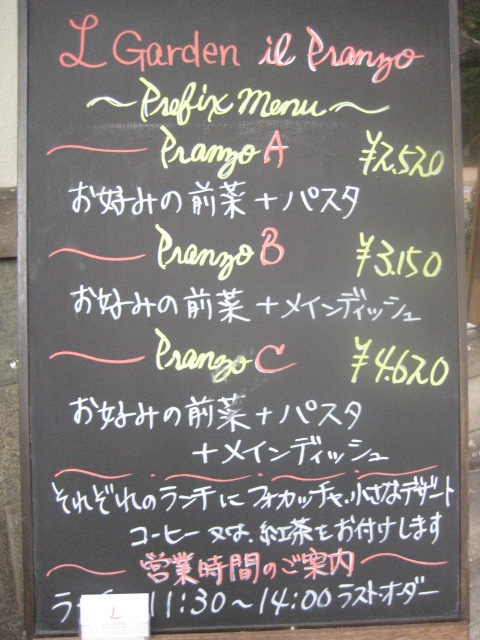 L Garden il Pranzo
～Prefix Menu～
Pranzo A ¥2.520
お好みの前菜+パスタ
Pranzo B ¥3.150
お好みの前菜+メインディッシュ
Pranzo C ¥4.620
お好みの前菜+パスタ
+メインディッシュ
それぞれのランチにフォカッチャ、小さなデザート
コーヒー又は、紅茶をお付けします
営業時間のご案内
11:30～14:00 ラストオーダー
L